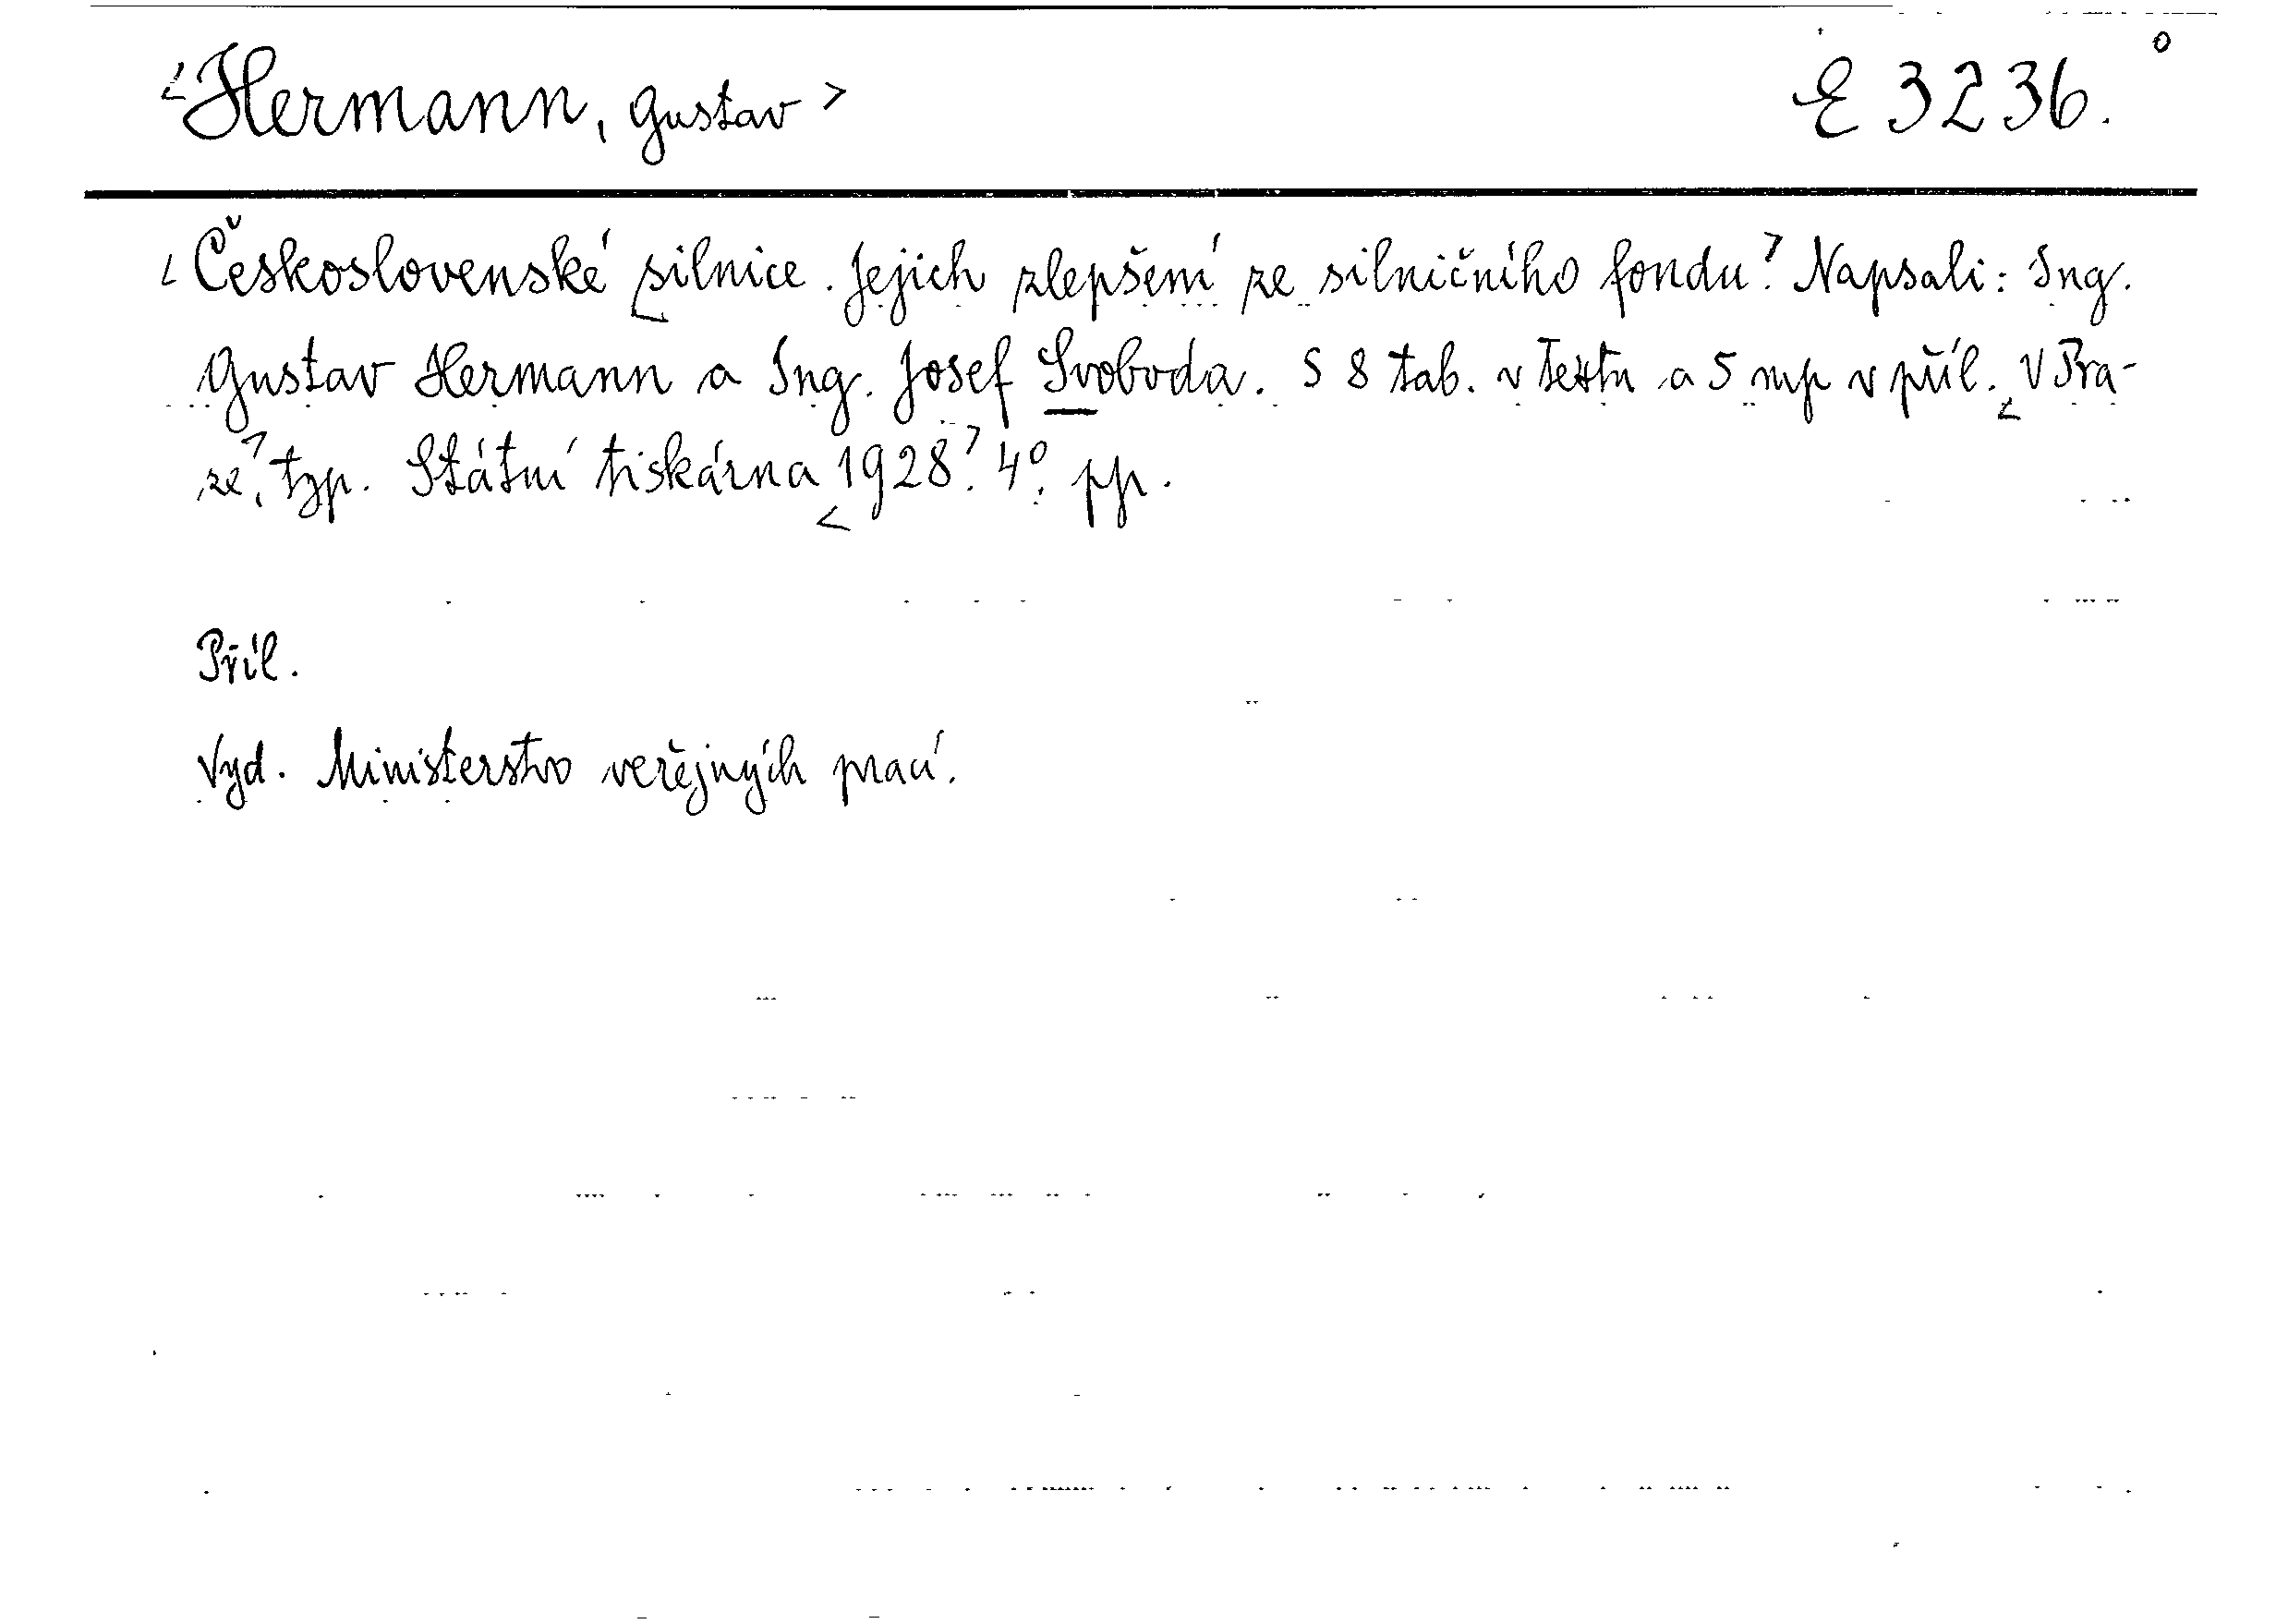 <Hermann, Gustav> E 3236.
<Československé silnice. Jejich zlepšení ze silničního fondu.> Napsali: Ing.
Gustav Hermann a Ing. Josef Svoboda. S 8 tab. v textu a 5 mp v příl. <V Pra-
ze>, typ. Státní tiskárna <1928.> 4°. pp.
Příl.
Vyd. Ministerstvo veřejných prací.